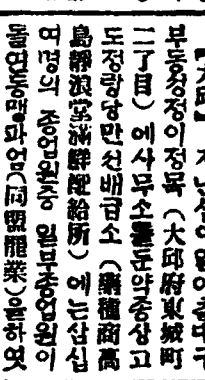 【大邱】지난십일일아츰대구
부동성정이정목(大邱府東城町
二丁目)에사무소를둔약종상고
도정랑당만선배급소(藥種商高
島靜浪堂滿鮮配給所)에는삼십
여명의 종업원중 일부종업원이
돌연동맹파업(同盟罷業)을하엿